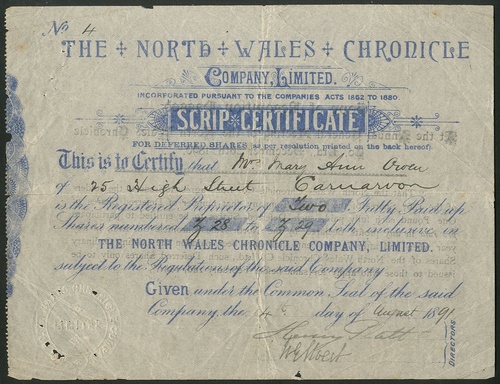 No 4
THE NORTH WALES CHRONICLE
COMPANY, LIMITED.
INCORPORATED PURSUANT TO THE COMPANIES ACTS 1862 TO 1880.
SCRIP CERTIFICATE
FOR DEFERRED SHARES (as per resolution printed on the back hereof)
This is to Certify that Mrs Mary Ann Owen
of 25 High Street Carnarvon
is the Registered Proprietor of Two Fully Paid up
Shares numbered Z 28 to Z 29 both inclusive in
THE NORTH WALES CHRONICLE COMPANY, LIMITED.
subject to the Regulations of the said Company
Given under the Common Seal of the said
Company the 4th day of August 1891
Henry Platt
DIRECTORS